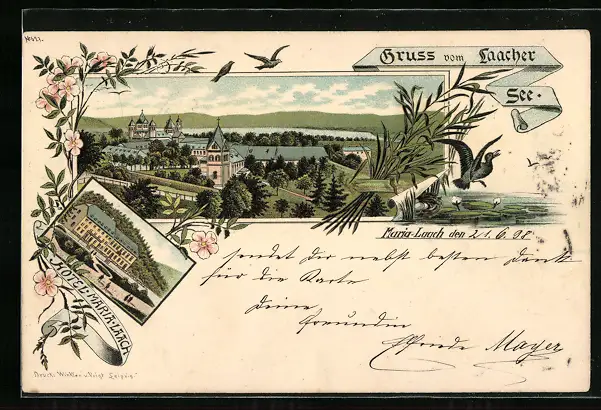 Gruss vom Laacher
See.
Maria-Laach den 21.6.98
sendet Dir nebst besten Dank
für die Karte
Deine
Freundin
Elfriede Mayer
HOTEL-MARIA-LAACH
Druck: Winkler u. Voigt Leipzig.